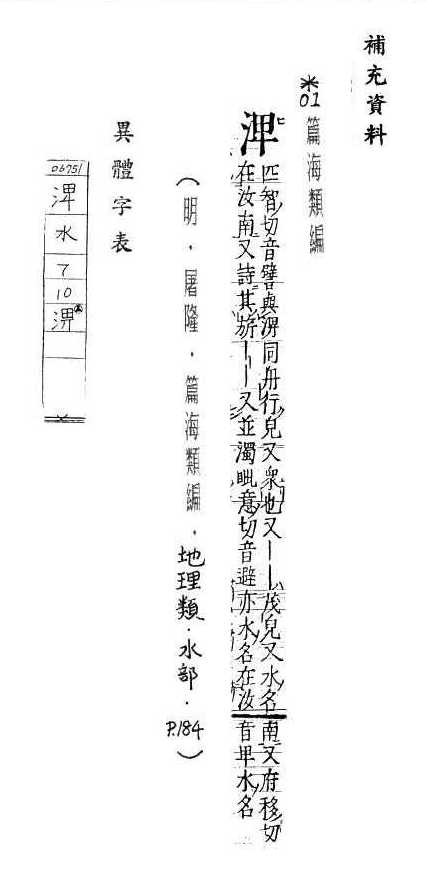 補充資料
*01 篇海類編
渒
匹智切音譬與淠同舟行皃又衆也又｜｜茂皃又水名
在汝南又詩其旂｜｜又並濁毗意切音避亦水名在汝
南又府移切
音卑水名
（明．屠隆．篇海類編．地理類．水部．P.184）
異體字表
06751
渒
水
7
10
淠